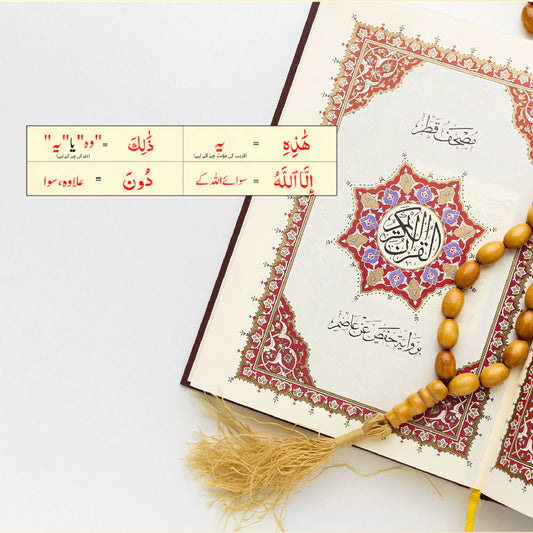 هٰذِهِ = یہ (قریب کی مؤنث چیز کے لیے) ذٰلِكَ = "وہ" یا "یہ"
إِلَّا ٱللَّهُ = سوائے اللہ کے دُونَ = علاوہ، سوا
مصحف قطر
القرآن الكريم
برواية حفص عن عاصم